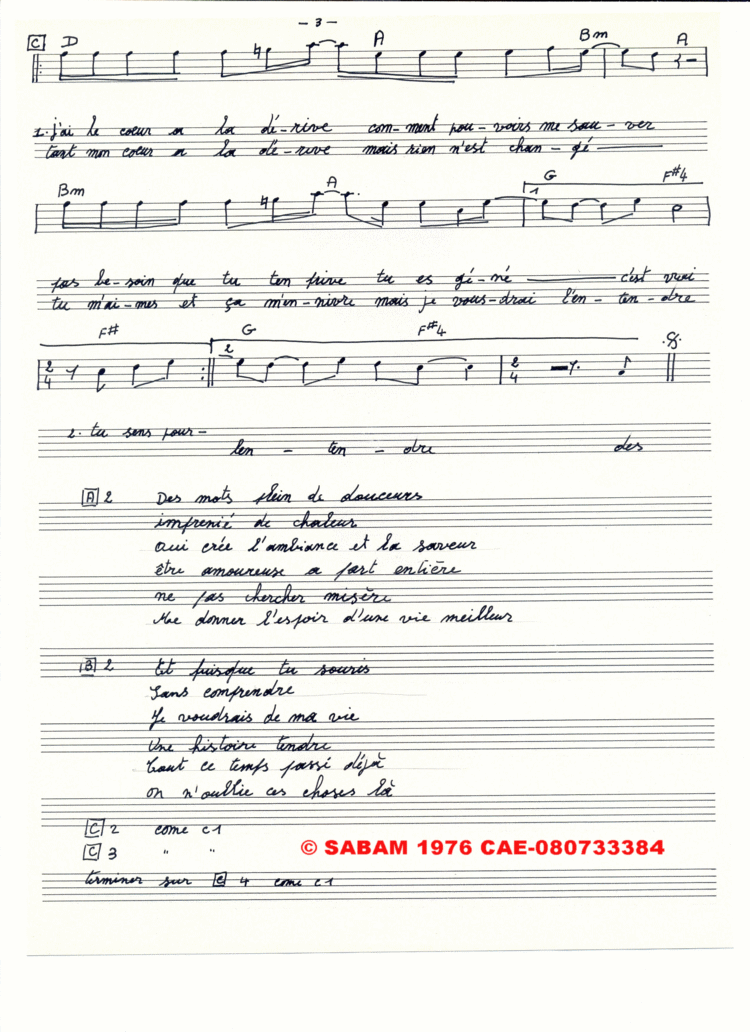 - 3 -
C D A Bm A
1. j'ai le coeur a la dé-rive com-ment pou-voirs me sau-ver
tant mon coeur a la dé-rive mais rien n'est chan-gé
Bm A 1 G F#4
pas be-soin que tu ten prive tu es gé-né c'est vrai
tu m'ai-mes et ça m'en-nivre mais je vous-drai l'en-ten-dre
F# 2 G F#4
2 4 2 4
2. tu sens pour-
len - ten - dre des
A 2 Des mots plein de douceurs
imprenié de chaleur
qui crée l'ambiance et la saveur
être amoureuse a part entière
ne pas chercher misère
Me donner l'espoir d'une vie meilleur
B 2 Et puisque tu souris
Sans comprendre
Je voudrais de ma vie
Une histoire tendre
Tout ce temps passé déjà
on n'oublie ces choses là
C 2 come c1
C 3 " "
© SABAM 1976 CAE-080733384
terminer sur C 4 come c1